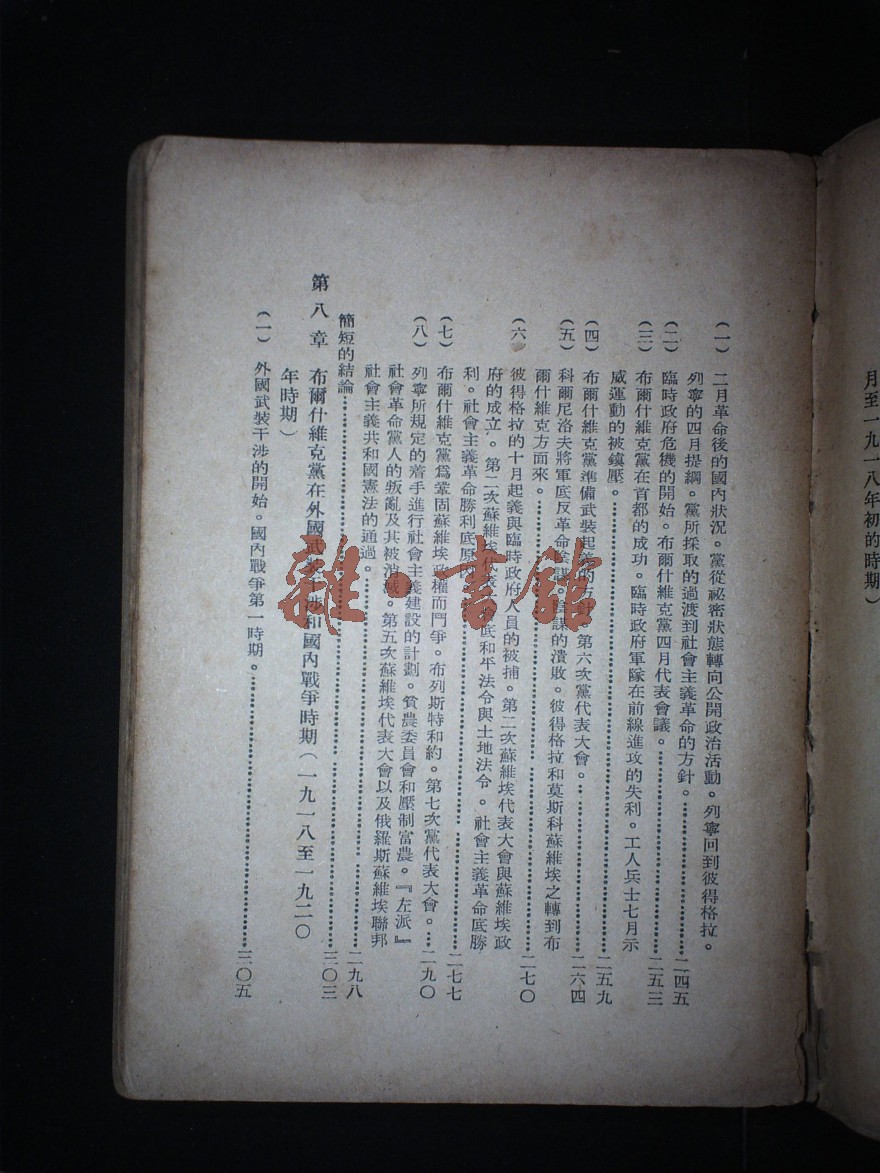 月至一九一八年初的時期）
（一） 二月革命後的國內狀况。黨從祕密狀態轉向公開政治活動。列寧回到彼得格拉。
列寧的四月提綱。黨所採取的過渡到社會主義革命的方針。…………二四五
（二） 臨時政府危機的開始。布爾什維克黨四月代表會議。…………二五三
（三） 布爾什維克黨在首都的成功。臨時政府軍隊在前線進攻的失利。工人兵士七月示
威運動的被鎮壓。…………二五九
（四） 布爾什維克黨準備武裝起義的方針。第六次黨代表大會。…………二六四
（五） 科爾尼洛夫將軍底反革命陰謀。陰謀的潰敗。彼得格拉和莫斯科蘇維埃之轉到布
爾什維克方面來。…………二七〇
（六） 彼得格拉的十月起義與臨時政府人員的被捕。第二次蘇維埃代表大會與蘇維埃政
府的成立。第二次蘇維埃代表大會底和平法令與土地法令。社會主義革命底勝
利。社會主義革命勝利底原因。…………二七七
（七） 布爾什維克黨爲鞏固蘇維埃政權而鬥爭。布列斯特和約。第七次黨代表大會。…二九〇
（八） 列寧所規定的着手進行社會主義建設的計劃。貧農委員會和壓制富農。『左派』
社會革命黨人的叛亂及其被消滅。第五次蘇維埃代表大會以及俄羅斯蘇維埃聯邦
社會主義共和國憲法的通過。…………二九八
簡短的結論…………三〇三
第八章 布爾什維克黨在外國武裝干涉和國內戰爭時期（一九一八至一九二〇
年時期）
（一） 外國武裝干涉的開始。國內戰爭第一時期。…………三〇五
雜·書館